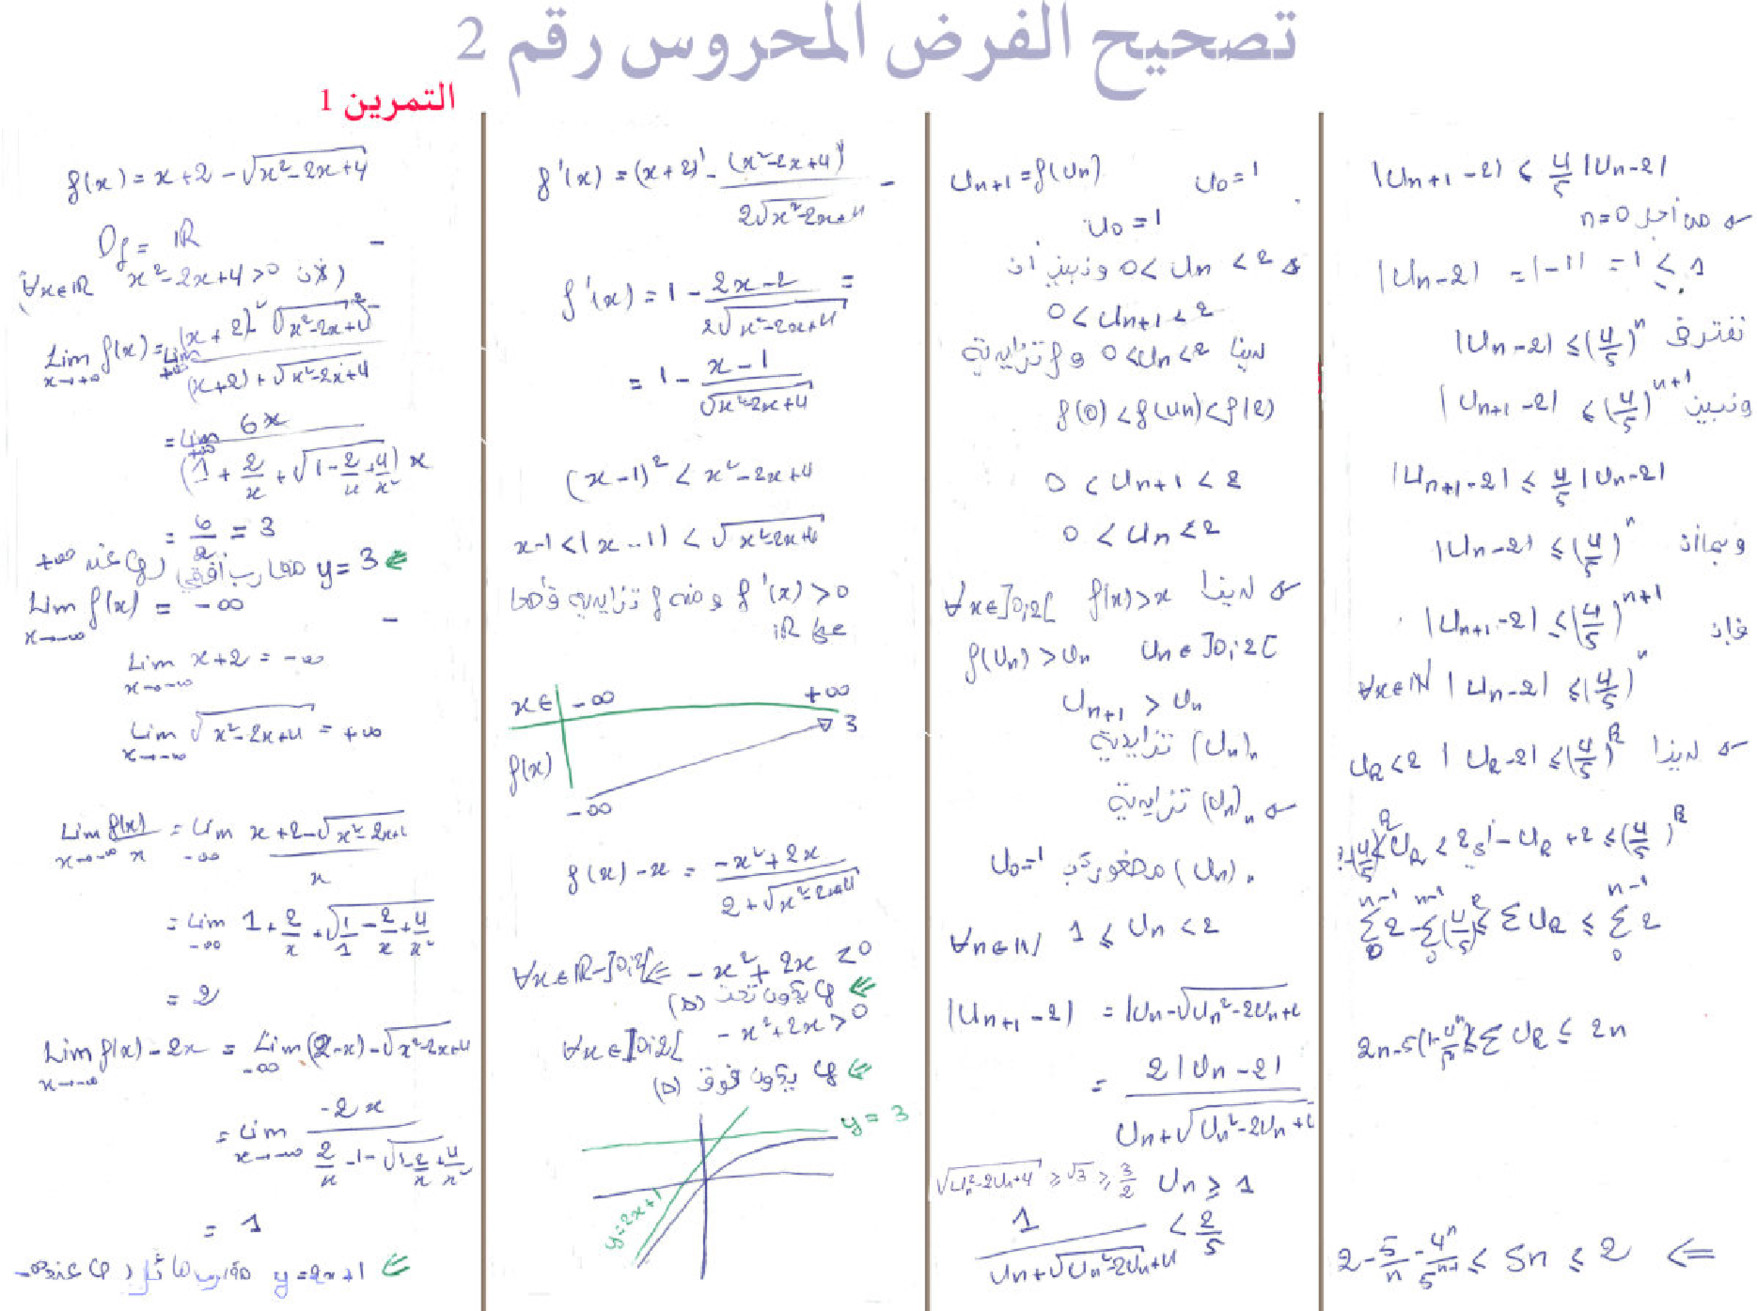 تصحيح الفرض المحروس رقم 2
التمرين 1
f(x) = x+2 - √(x²-2x+4)
Df = ℝ -
∀x∈ℝ x²-2x+4 > 0 (لأن
Lim f(x) = Lim ((x+2)² - (√(x²-2x+4))²) / ((x+2) + √(x²-2x+4))
x→+∞ +∞
= Lim 6x / (1 + 2/x + √(1 - 2/x + 4/x²)) x
+∞
= 6/2 = 3
⇐ y = 3 مقارب أفقي لـ (φ) عند +∞
Lim f(x) = -∞ -
x→-∞
Lim x+2 = -∞
x→-∞
Lim √(x²-2x+4) = +∞
x→-∞
Lim f(x)/x = Lim (x+2-√(x²-2x+4)) / x
x→-∞ -∞
= Lim 1 + 2/x + √(1/1 - 2/x + 4/x²)
-∞
= 2
Lim f(x) - 2x = Lim (2-x) - √(x²-2x+4)
x→-∞ -∞
= Lim -2x / (2/x - 1 - √(1 - 2/x + 4/x²))
x→-∞
= 1
⇐ y = 2x+1 مقارب مائل لـ (φ) عند -∞
f'(x) = (x+2)' - (x²-2x+4)' / 2√(x²-2x+4) -
f'(x) = 1 - (2x-2) / 2√(x²-2x+4) =
= 1 - (x-1) / √(x²-2x+4)
(x-1)² < x²-2x+4
x-1 < |x-1| < √(x²-2x+4)
f'(x) > 0 ومنه f تزايدية قطعا
على ℝ
x∈ -∞ +∞
f(x) 3
-∞
f(x) - x = (-x²+2x) / (2+√(x²-2x+4))
∀x∈ℝ-]0;2[ ⇐ -x²+2x < 0
⇐ φ يكون تحت (D)
∀x∈]0;2[ -x²+2x > 0
⇐ φ يكون فوق (D)
y = 3
y = 2x+1
Un+1 = f(Un) U0 = 1
U0 = 1
0 < Un < 2 ونبين أن
0 < Un+1 < 2
لدينا 0 < Un < 2 و f تزايدية
f(0) < f(Un) < f(2)
0 < Un+1 < 2
0 < Un < 2
لدينا ∀x∈]0;2[ f(x) > x
f(Un) > Un Un ∈ ]0;2[
Un+1 > Un
(Un)n تزايدية
(Un)n تزايدية
(Un)n مصغورة ب U0=1
∀n∈ℕ 1 ≤ Un < 2
|Un+1 - 2| = |Un - √(Un²-2Un+4)|
= 2|Un-2| / (Un+√(Un²-2Un+4))
√(Un²-2Un+4) ≥ √3 ≥ 3/2 Un ≥ 1
1 / (Un+√(Un²-2Un+4)) < 2/5
|Un+1 - 2| ≤ 4/5 |Un-2|
من أجل n=0
|Un-2| = |-1| = 1 ≤ 1
نفترض |Un-2| ≤ (4/5)ⁿ
ونبين |Un+1 - 2| ≤ (4/5)ⁿ⁺¹
|Un+1 - 2| ≤ 4/5 |Un-2|
وبما أن |Un-2| ≤ (4/5)ⁿ
فإن |Un+1 - 2| ≤ (4/5)ⁿ⁺¹
∀x∈ℕ |Un-2| ≤ (4/5)ⁿ
لدينا Uk < 2 |Uk-2| ≤ (4/5)ᵏ
2-(4/5)ᵏ ≤ Uk < 2 ; -Uk + 2 ≤ (4/5)ᵏ
Σ2 - Σ(4/5)ᵏ ≤ ΣUk ≤ Σ2
2n - 5(1-4ⁿ/5ⁿ) ≤ ΣUk ≤ 2n
2 - 5/n - 4ⁿ/5ⁿ⁻¹ ≤ Sn ≤ 2 ⇐